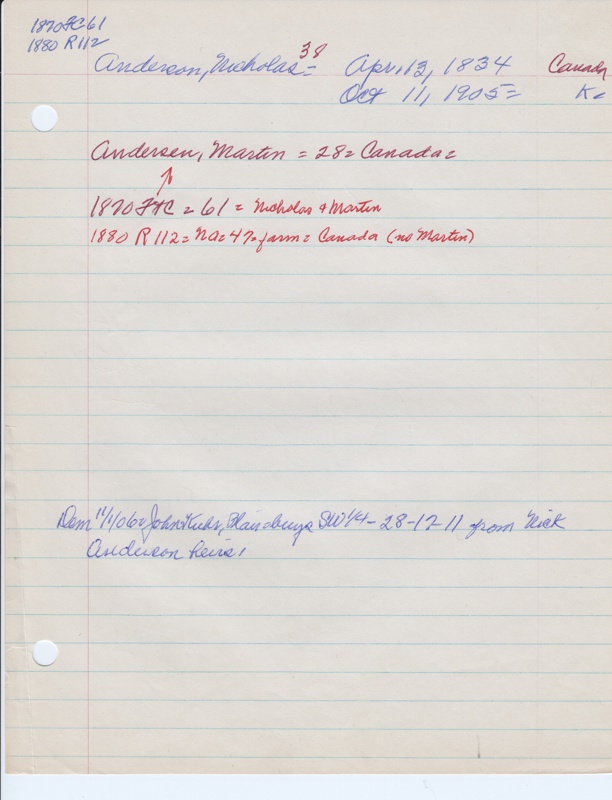 1870 FC 61
1880 R 112
Anderson, Nicholas = 38 Apr. 13, 1834 Canada
Oct 11, 1905 = K=
Andersen, Martin = 28 = Canada =
1870 FTC = 61 = Nicholas & Martin
1880 R 112 = Na = 47 = farm = Canada (no Martin)
Dem 11/1/06 = John buys SW 1/4 - 28-17-11 from Nick
Anderson heirs,